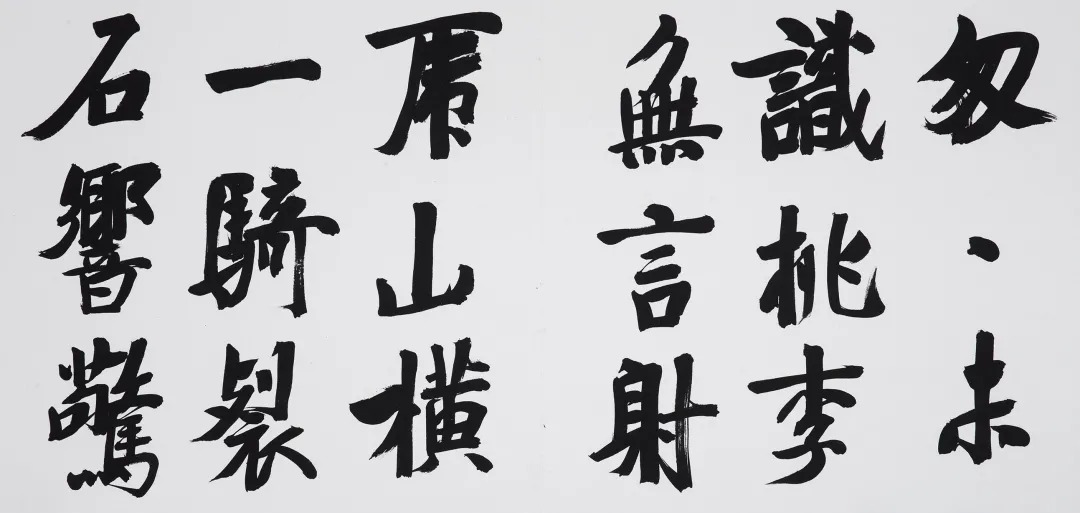 匆、未
識桃李
無言射
虎山橫
一騎裂
石響驚